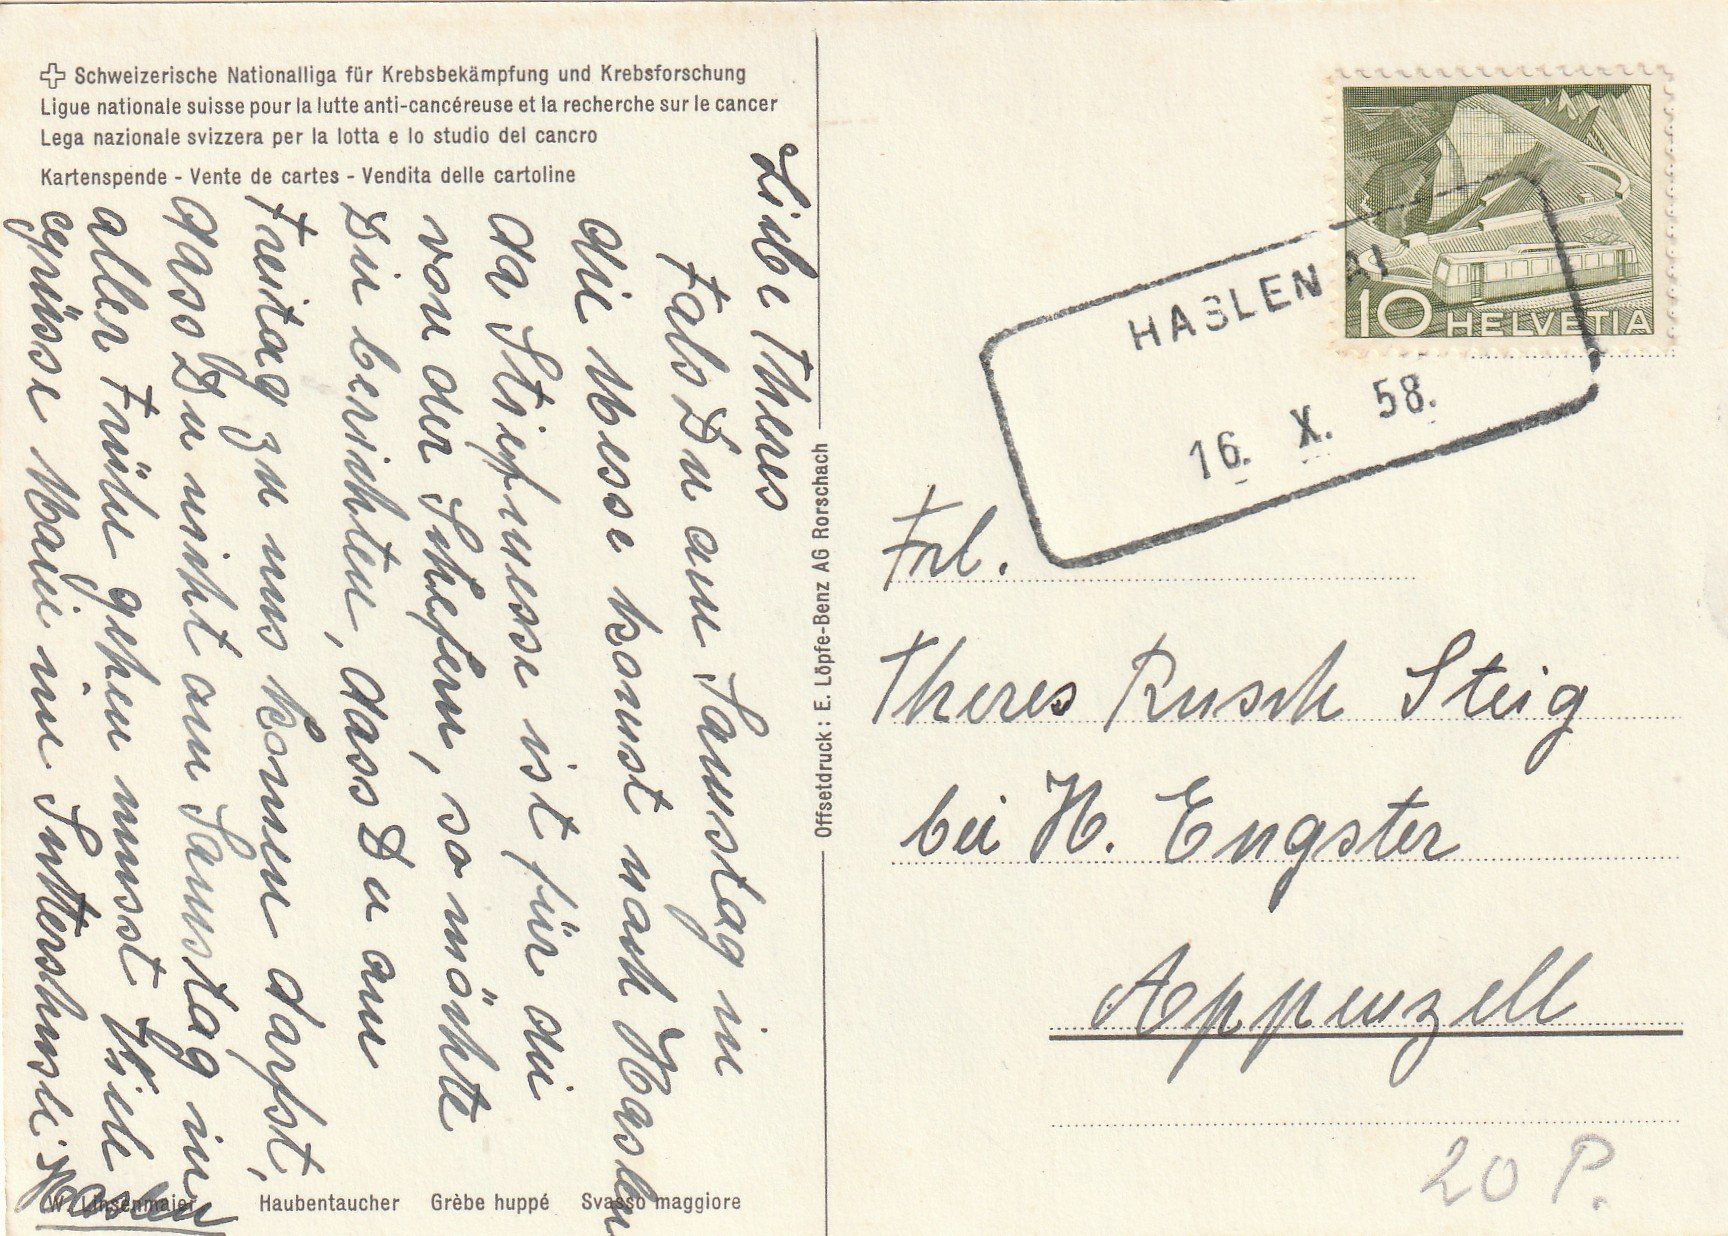 Schweizerische Nationalliga für Krebsbekämpfung und Krebsforschung
Ligue nationale suisse pour la lutte anti-cancéreuse et la recherche sur le cancer
Lega nazionale svizzera per la lotta e lo studio del cancro
Kartenspende - Vente de cartes - Vendita delle cartoline
Liebe Theres
Fals Du am Samstag in
die Messe komst nach Haslen
da Stefmesse ist für die
von der Schefern, so möchte
Dir berichten, dass Du am
Freitag zu uns komen darfst,
dass Du nicht am Samstag in
aller Früh gehen musst. Viele
grüsse Marie im Sutterschusli.
Haslen
W. Linsenmaier Haubentaucher Grèbe huppé Svasso maggiore
Offsetdruck: E. Löpfe-Benz AG Rorschach
10 HELVETIA
HASLEN AI
16. X. 58.
Frl.
Theres Rusch Steig
bei H. Engster
Appenzell
20 P.